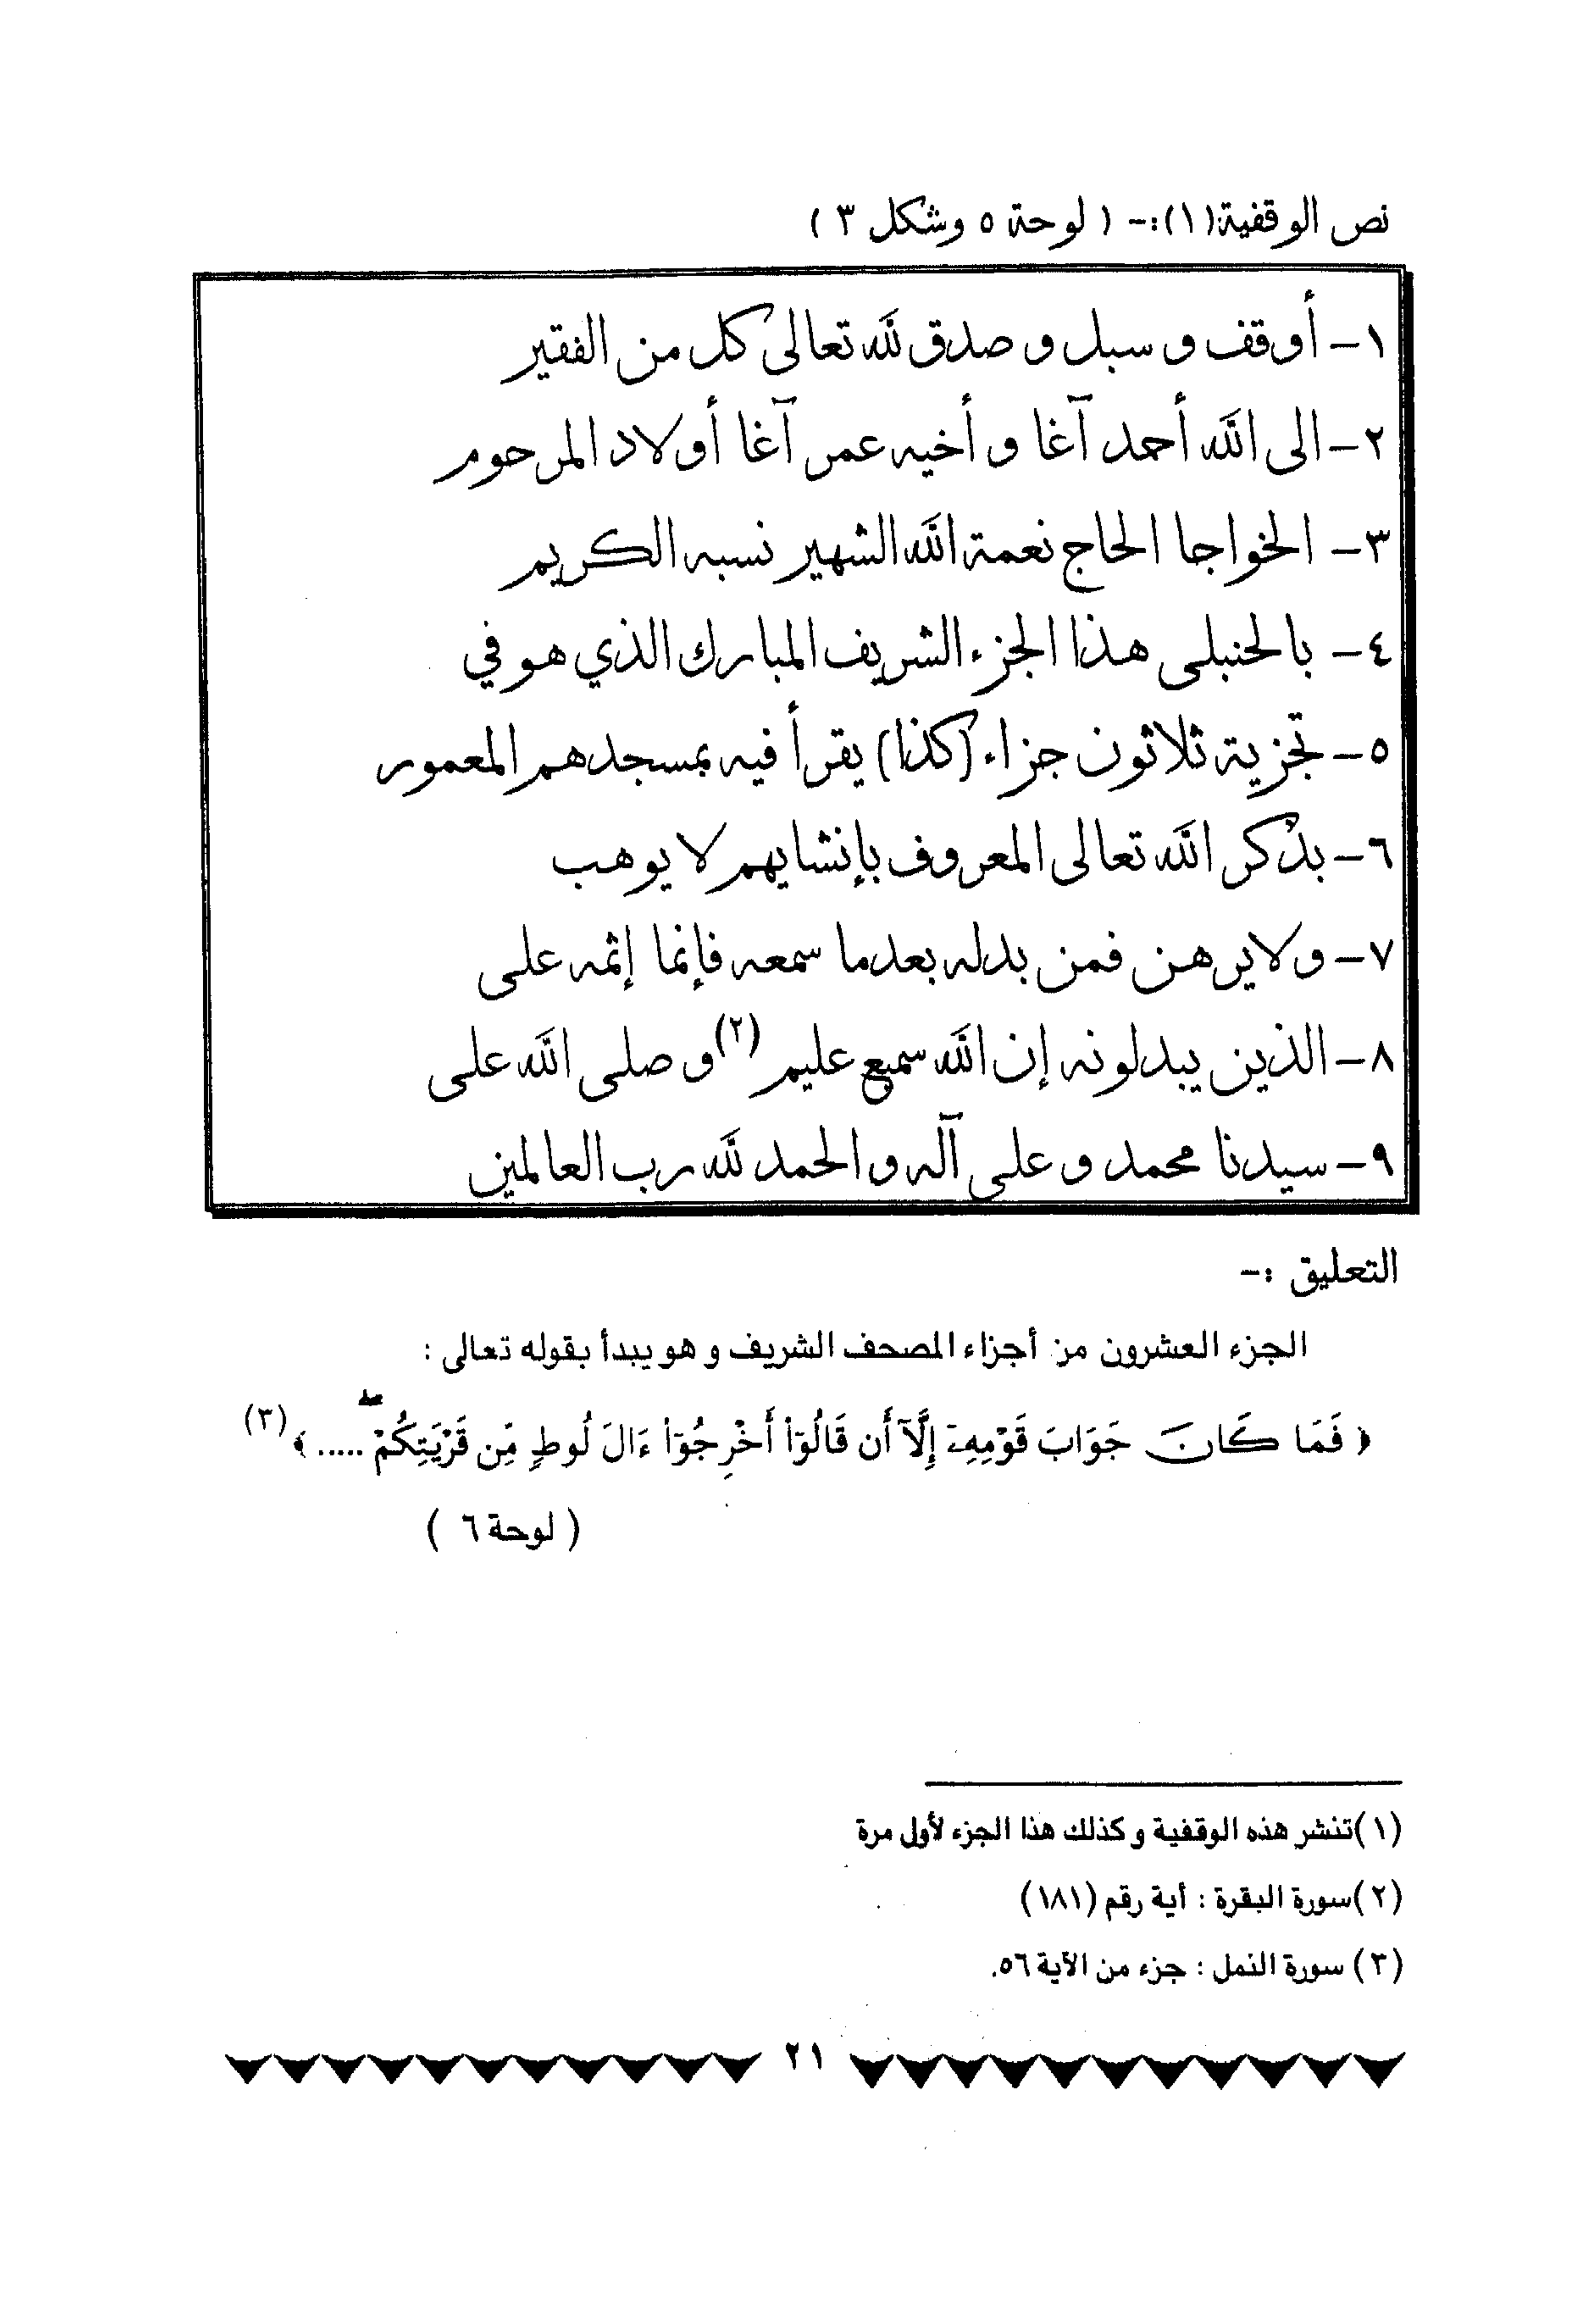 نص الوقفية(١):- ( لوحة ٥ وشكل ٣ )
١- أوقف و سبل و صدق لله تعالى كل من الفقير
٢- الى الله أحمد آغا و أخيه عمر آغا أولاد المرحوم
٣- الخواجا الحاج نعمة الله الشهير نسبه الكريم
٤- بالحنبلي هذا الجزء الشريف المبارك الذي هو في
٥- تجزية ثلاثون جزاء (كذا) يقرأ فيه بمسجدهم المعمور
٦- بذكر الله تعالى المعروف بإنشايهم لا يوهب
٧- ولا يرهن فمن بدله بعدما سمعه فإنما إثمه على
٨- الذين يبدلونه إن الله سميع عليم (٢) و صلى الله على
٩- سيدنا محمد و على آله و الحمد لله رب العالمين
التعليق :-
الجزء العشرون من أجزاء المصحف الشريف و هو يبدأ بقوله تعالى :
﴿ فَمَا كَانَ جَوَابَ قَوْمِهِۦٓ إِلَّآ أَن قَالُوٓا۟ أَخْرِجُوٓا۟ ءَالَ لُوطٍ مِّن قَرْيَتِكُمْ ۖ ..... ﴾ (٣)
( لوحة ٦ )
(١)تنشر هذه الوقفية و كذلك هذا الجزء لأول مرة
(٢)سورة البقرة : أية رقم (١٨١)
(٣) سورة النمل : جزء من الآية ٥٦.
٢١